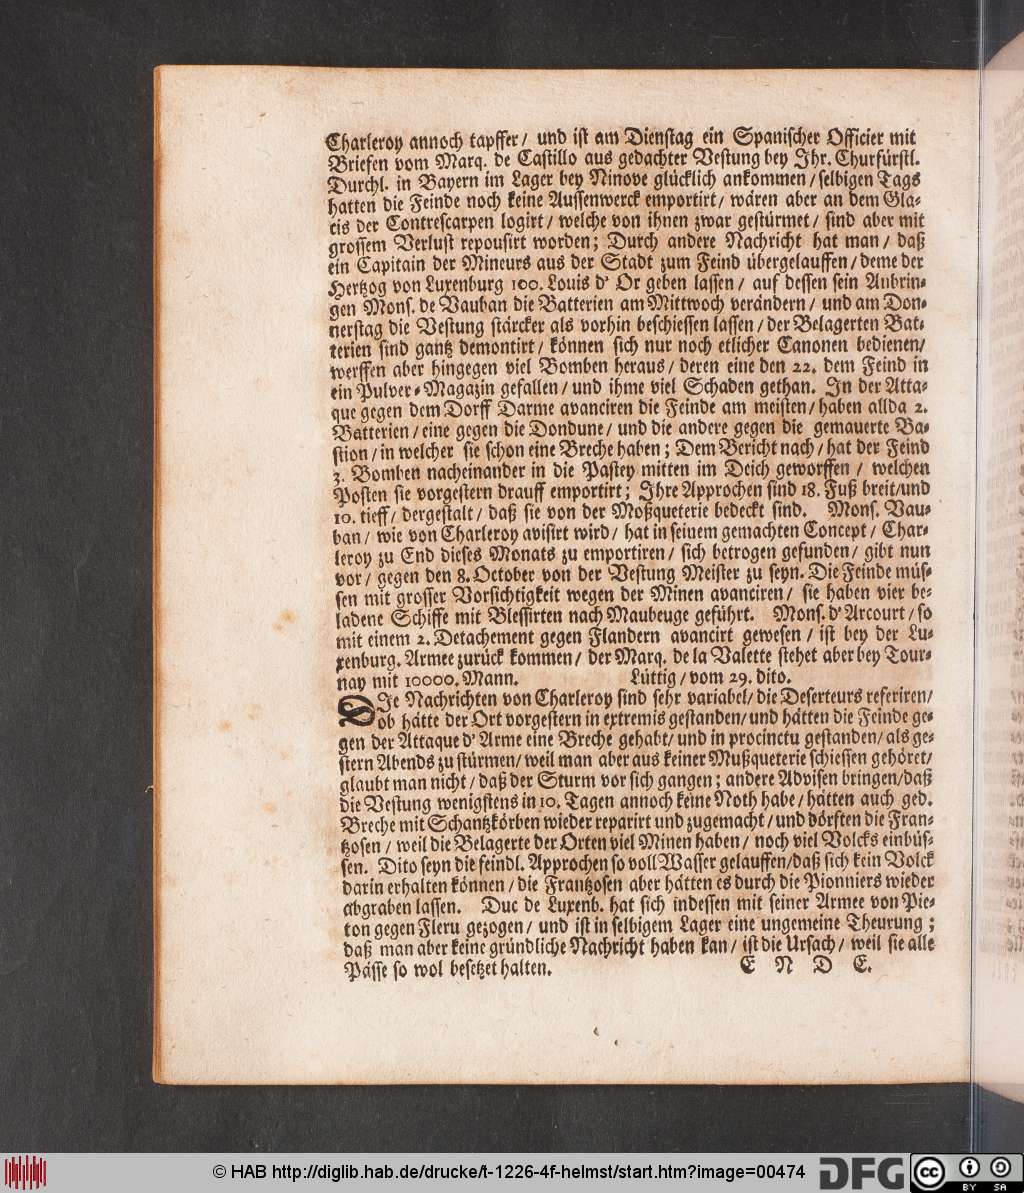 Charleroy annoch tapffer / und ist am Dienstag ein Spanischer Officier mit
Briefen vom Marq. de Castillo aus gedachter Vestung bey Ihr. Churfürstl.
Durchl. in Bayern im Lager bey Ninove glücklich ankommen / selbigen Tags
hatten die Feinde noch keine Aussenwerck emportirt / wären aber an dem Gla-
cis der Contrescarpen logirt / welche von ihnen zwar gestürmet / sind aber mit
grossem Verlust repousirt worden; Durch andere Nachricht hat man / daß
ein Capitain der Mineurs aus der Stadt zum Feind übergelauffen / deme der
Hertzog von Luxenburg 100. Louis d' Or geben lassen / auf dessen sein Anbrin-
gen Mons. de Vauban die Batterien am Mittwoch verändern / und am Don-
nerstag die Vestung stärcker als vorhin beschiessen lassen / der Belagerten Bat-
terien sind gantz demontirt / können sich nur noch etlicher Canonen bedienen/
werffen aber hingegen viel Bomben heraus / deren eine den 22. dem Feind in
ein Pulver-Magazin gefallen / und ihme viel Schaden gethan. In der Atta-
que gegen dem Dorff Darme avanciren die Feinde am meisten / haben allda 2.
Batterien / eine gegen die Dondune / und die andere gegen die gemauerte Ba-
stion / in welcher sie schon eine Breche haben; Dem Bericht nach / hat der Feind
3. Bomben nacheinander in die Pastey mitten im Deich geworffen / welchen
Posten sie vorgestern drauff emportirt; Ihre Approchen sind 18. Fuß breit/und
10. tieff / dergestalt / daß sie von der Moßqueterie bedeckt sind. Mons. Vau-
ban / wie von Charleroy avisirt wird / hat in seinem gemachten Concept / Char-
leroy zu End dieses Monats zu emportiren / sich betrogen gefunden / gibt nun
vor / gegen den 8. October von der Vestung Meister zu seyn. Die Feinde müs-
sen mit grosser Vorsichtigkeit wegen der Minen avanciren / sie haben vier be-
ladene Schiffe mit Blessirten nach Maubeuge geführt. Mons. d' Arcourt / so
mit einem 2. Detachement gegen Flandern avancirt gewesen / ist bey der Lu-
xenburg. Armee zurück kommen / der Marq. de la Valette stehet aber bey Tour-
nay mit 10000. Mann. Lüttig / vom 29. dito.
DIe Nachrichten von Charleroy sind sehr variabel / die Deserteurs referiren/
ob hätte der Ort vorgestern in extremis gestanden / und hätten die Feinde ge-
gen der Attaque d' Arme eine Breche gehabt / und in procinctu gestanden / als ge-
stern Abends zu stürmen / weil man aber aus keiner Mußqueterie schiessen gehöret/
glaubt man nicht / daß der Sturm vor sich gangen; andere Advisen bringen/daß
die Vestung wenigstens in 10. Tagen annoch keine Noth habe / hätten auch ged.
Breche mit Schantzkörben wieder reparirt und zugemacht / und dörfften die Fran-
tzosen / weil die Belagerte der Orten viel Minen haben / noch viel Volcks einbüs-
sen. Dito seyn die feindl. Approchen so voll Wasser gelauffen/daß sich kein Volck
darin erhalten können / die Frantzosen aber hätten es durch die Pionniers wieder
abgraben lassen. Duc de Luxenb. hat sich indessen mit seiner Armee von Pie-
ton gegen Fleru gezogen / und ist in selbigem Lager eine ungemeine Theurung;
daß man aber keine gründliche Nachricht haben kan / ist die Ursach / weil sie alle
Pässe so wol besetzet halten. E N D E.
© HAB http://diglib.hab.de/drucke/t-1226-4f-helmst/start.htm?image=00474
DFG
cc BY SA